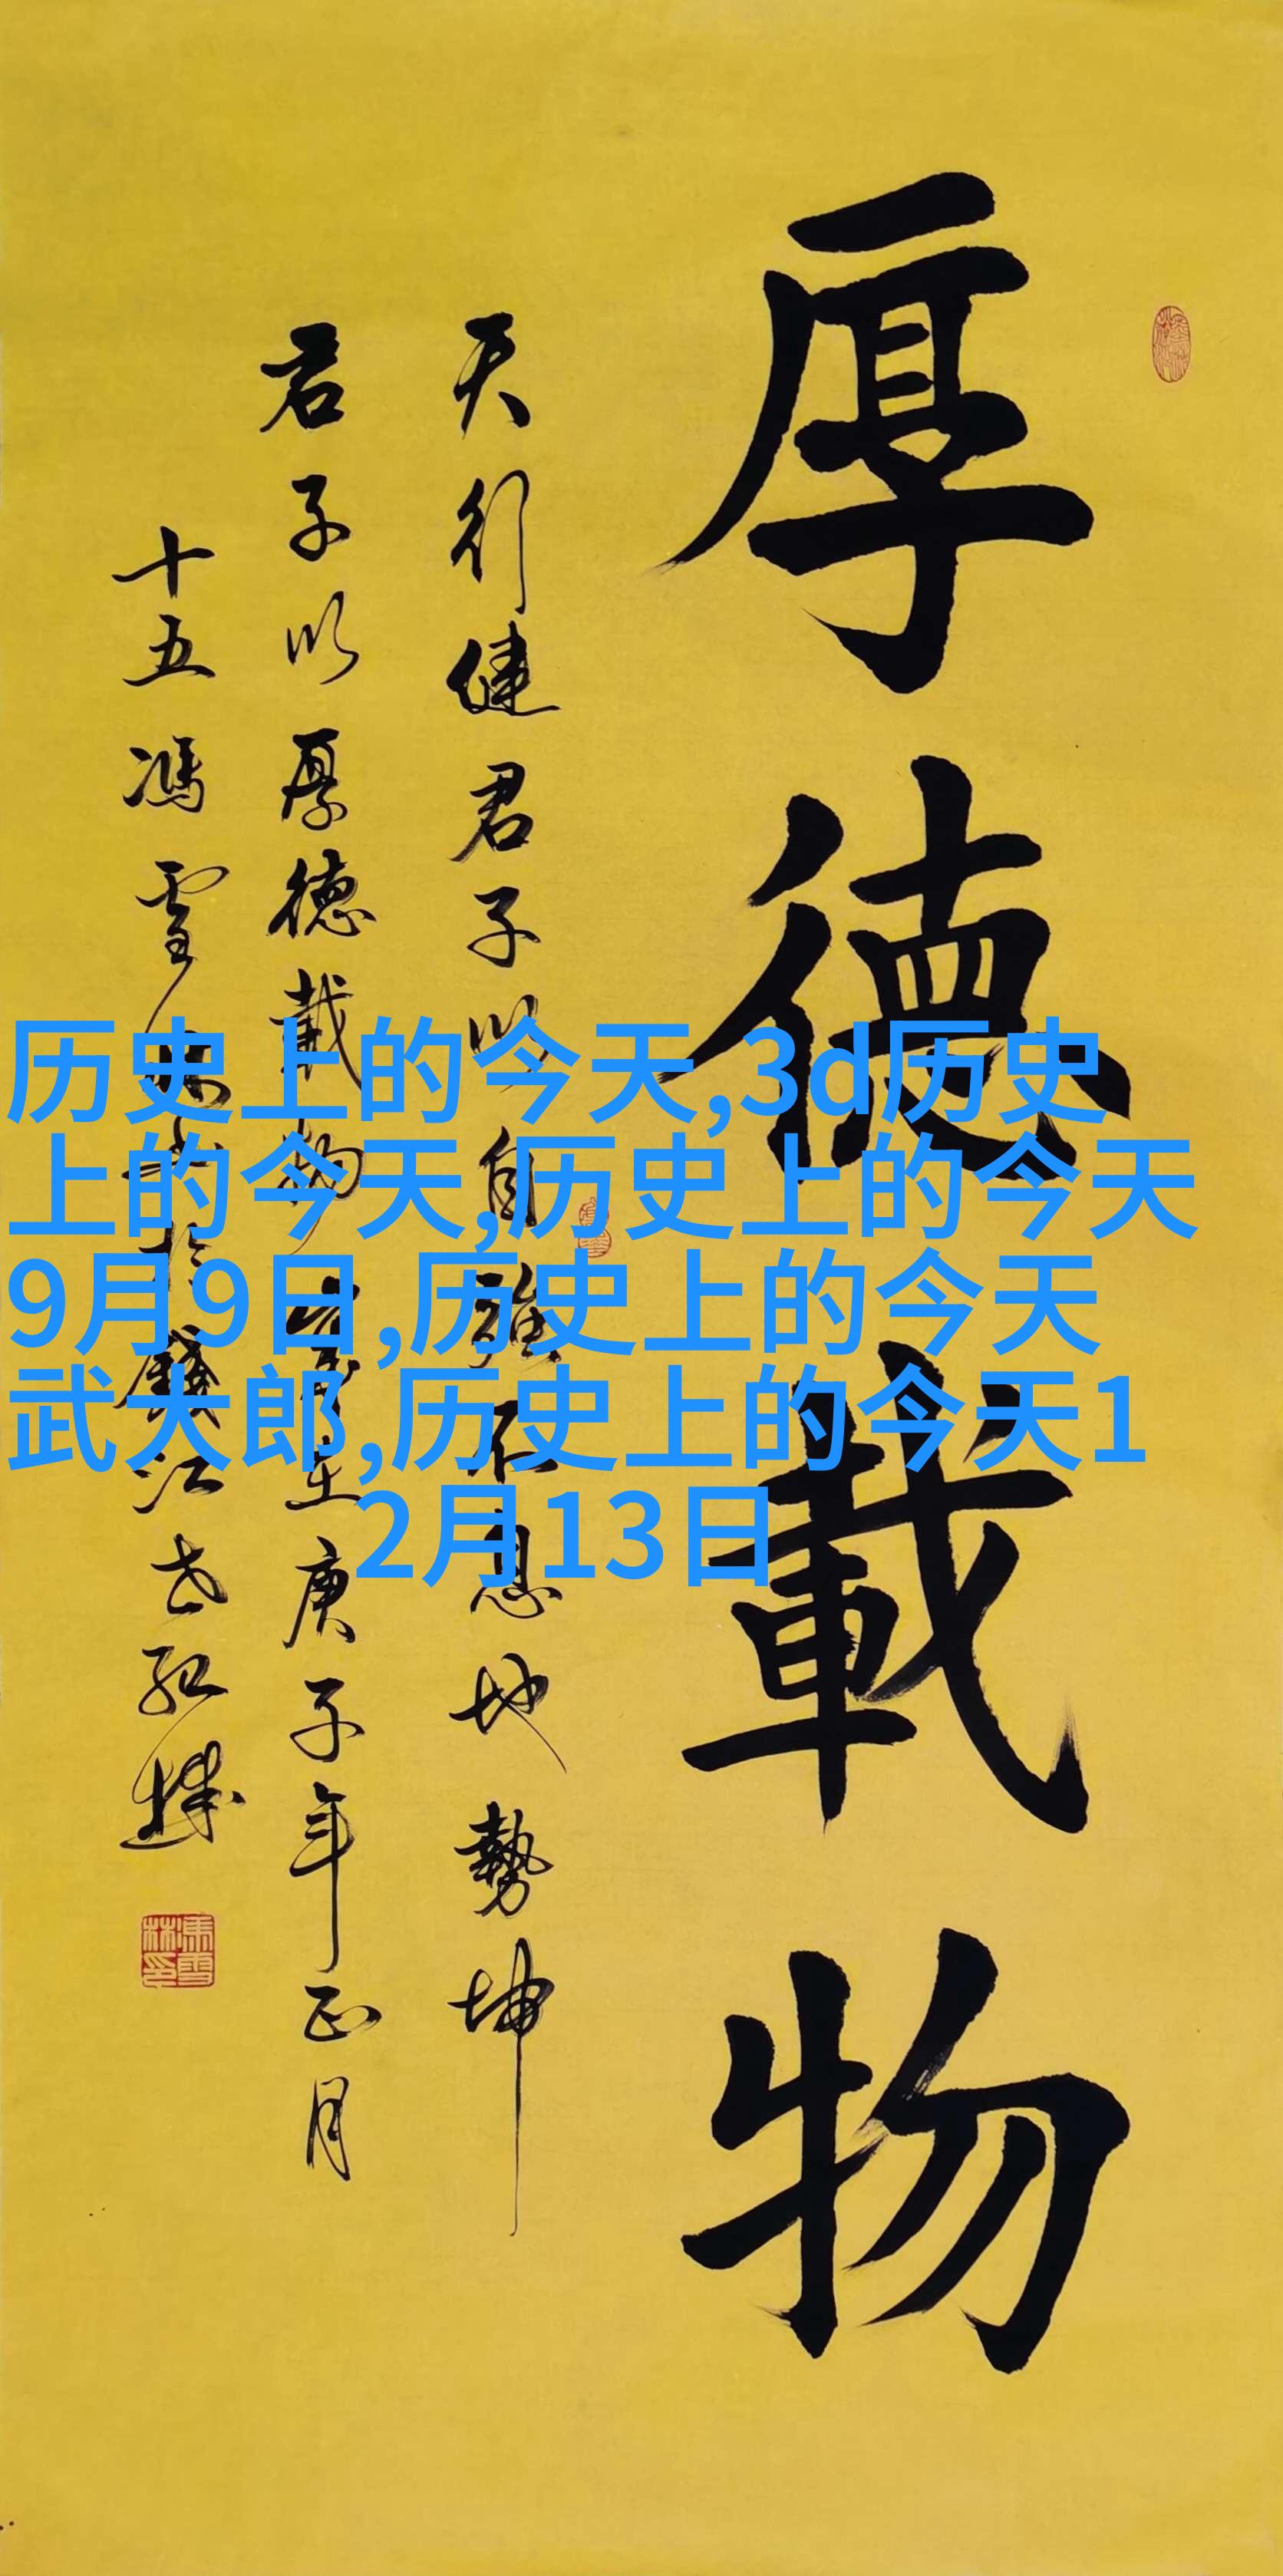 厚德載物
天行健君子以自強不息地勢坤
君子以厚德載物歲在庚子年正月
十五馮雪林書於錢江世紀城
馮雪林印
历史上的今天,3d历史
上的今天,历史上的今天
9月9日,历史上的今天
武大郎,历史上的今天1
2月13日